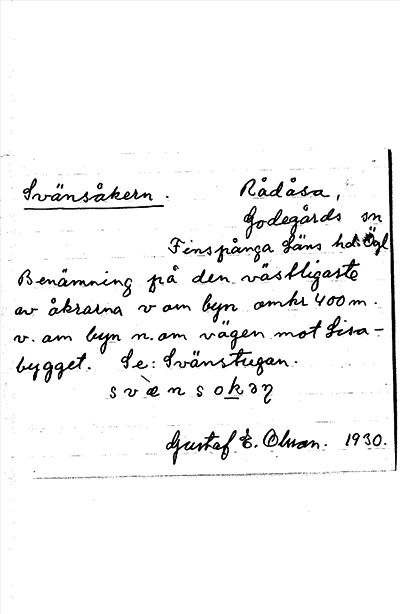 Svänsåkern. Rådåsa,
Godegårds sn
Finspånga Läns hd. Ögl
Benämning på den västligaste
av åkrarna v om byn omkr 400 m.
v. om byn n. om vägen mot Lisa-
bygget. Se: Svänstugan.
svæ̀nsokəƞ
Gustaf E. Olsson. 1930.